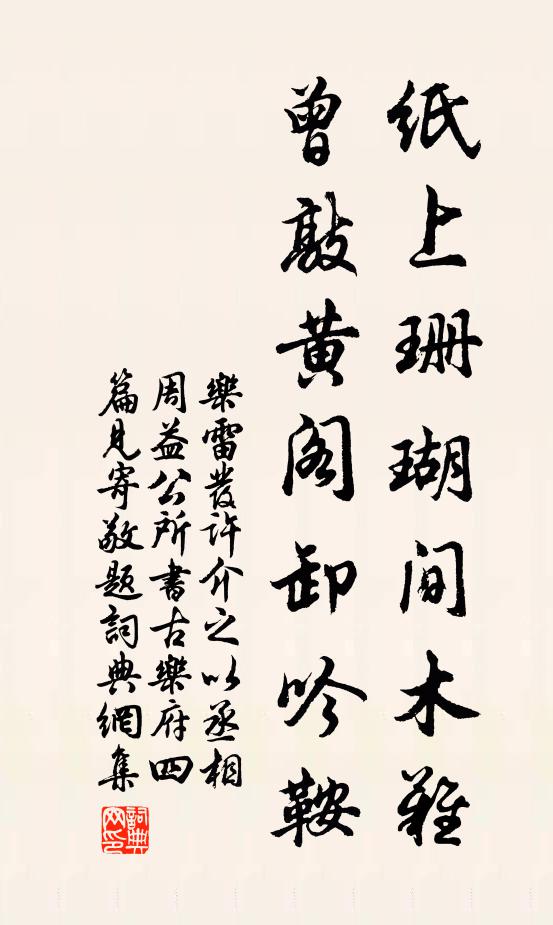 纸上珊瑚间木难
曾敲黄阁卸吟鞍
樂雷發许介之以丞相
周益公所書古樂府四
篇見寄敬题詞典網集
詞典網印